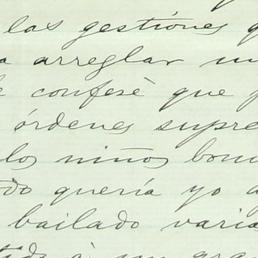 las gestiónes q
a arreglar un
e confesè que
órdenes supre
los niños bon
do quería yo a
bailado varia